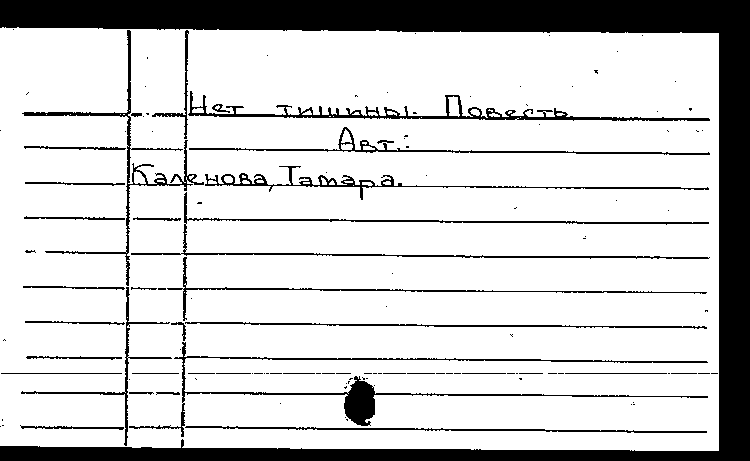 Нет тишины. Повесть
Авт.:
Каленова, Тамара.